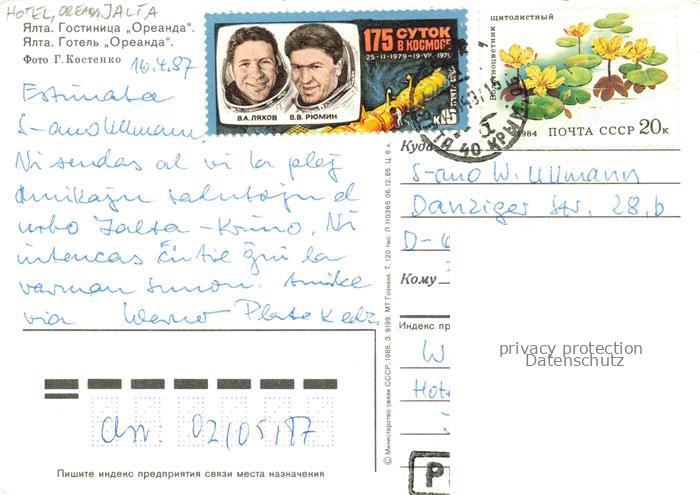 HOTEL, OREANDA JALTA
Ялта. Гостиница „Ореанда“.
Ялта. Готель „Ореанда“.
Фото Г. Костенко
16.4.87
Estimata
S-ano Ullmann,
Ni sendas al vi la plej
amikajn salutojn el
urbo Jalta-Krimo. Ni
intencas ĉi tie ĝui la
varman sunon. Amike
via Werner Plate
175 СУТОК
В КОСМОСЕ
25-II-1979-19-VIII-1979
В.А.ЛЯХОВ
В.В.РЮМИН
ПОЧТА СССР
К15
Болотноцветник
щитолистный
1984 ПОЧТА СССР 20к
Куда
S-ano W. Ullmann
Danziger Str. 28,b
D-
Кому
Индекс пр
W
Hot
© Министерство связи СССР, 1986. З. 8199. МТ Гознака. Т. 120 тыс. Л 110365 06.12.85. Ц. 6 к.
privacy protection
Datenschutz
02/05/87
Пишите индекс предприятия связи места назначения
P